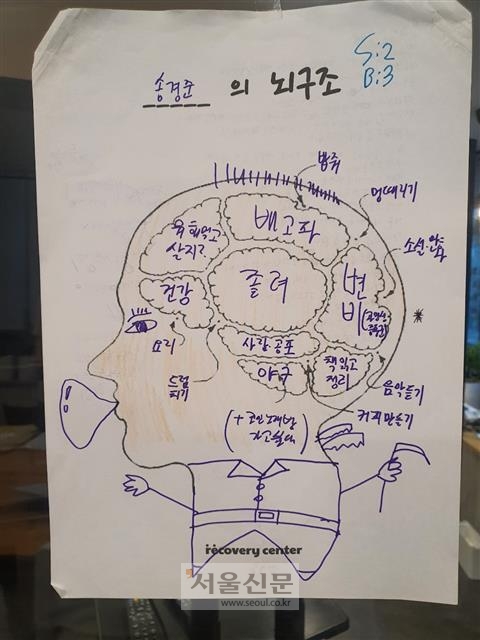 S:2
B:3
송경준 의 뇌구조
밥줘
멍때리기
배고파
뭐 해먹고
살지?
소설·만화
졸려
변
비
건강
요리
드럼
치기
사람 공포
야구
책 읽고
정리
음악듣기
커피만들기
(+코인노래방
가고싶다)
recovery center
서울신문
www.seoul.co.kr